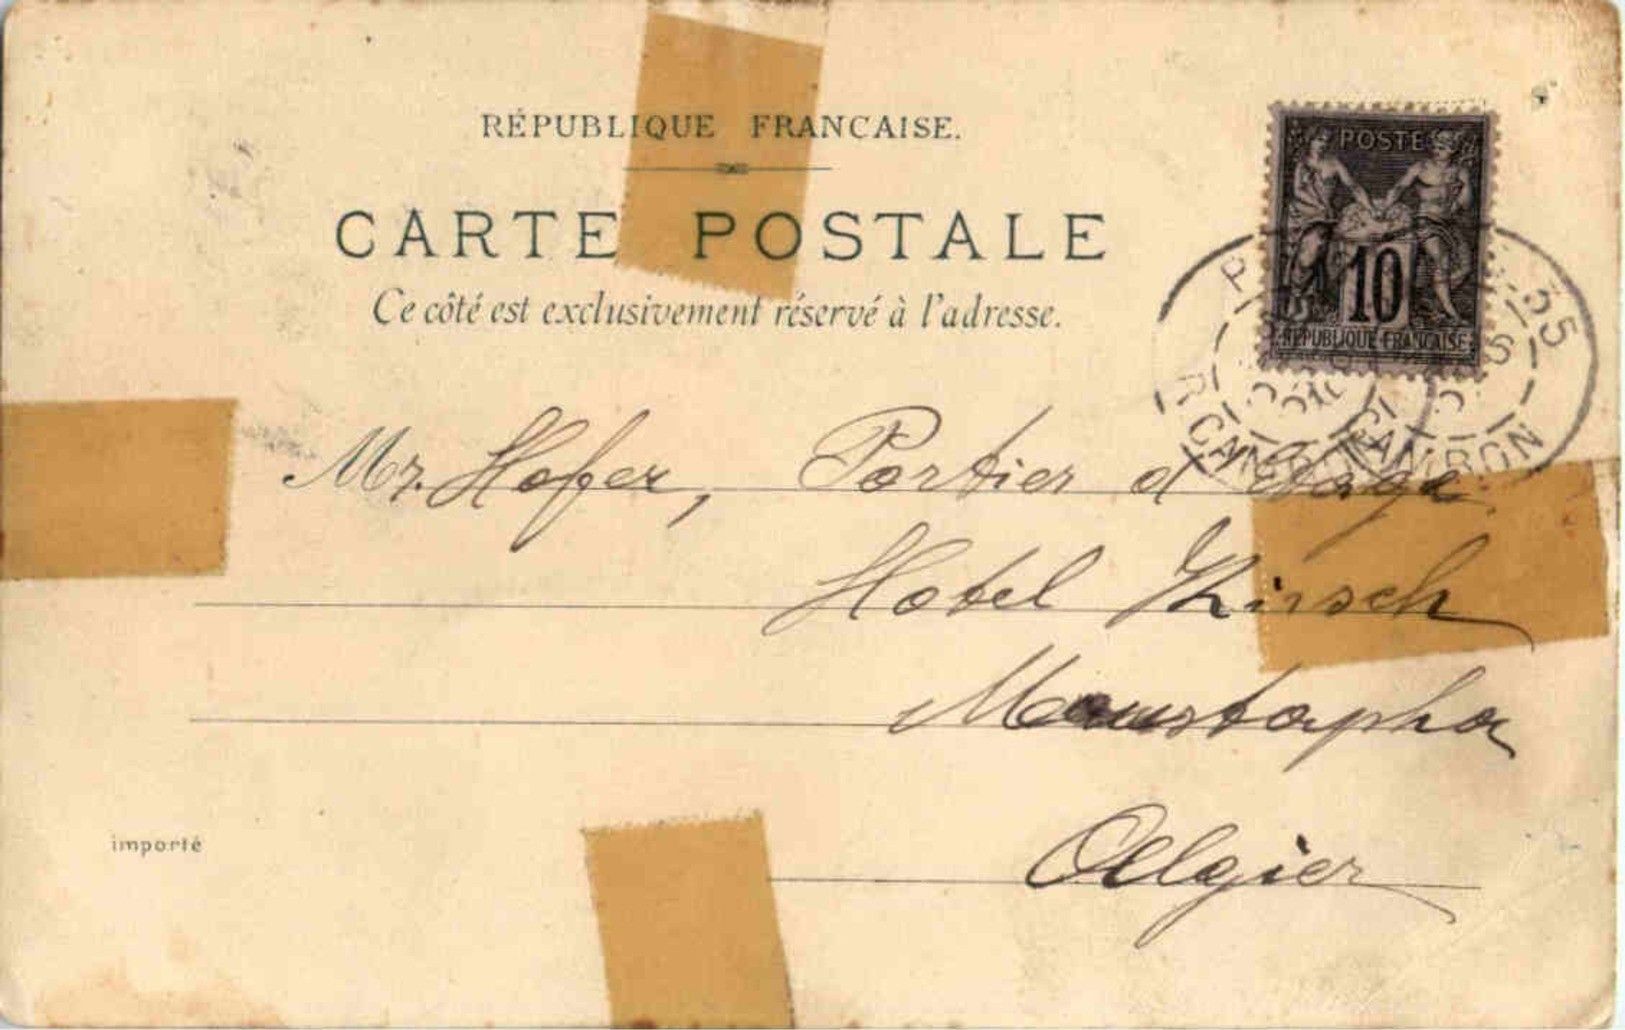 RÉPUBLIQUE FRANÇAISE.
CARTE POSTALE
Ce côté est exclusivement réservé à l'adresse.
POSTE
10
REPUBLIQUE FRANÇAISE
55
R. CAMBON
CAMBON
Mr. Hofer, Portier d'Etage
Hotel Kirsch
Moustapha
Algier
importé